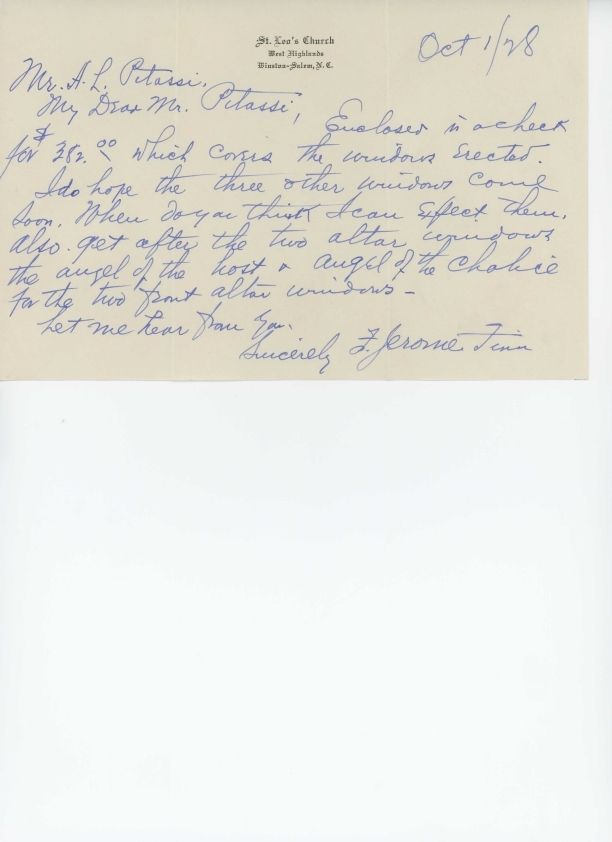 St. Leo's Church
West Highlands
Winston-Salem, N.C.
Oct 1/28
Mr. A. L. Pitassi.
My Dear Mr. Pitassi, Enclosed is a check
for $382.00 which covers the windows erected.
I do hope the three other windows come
soon. When do you think I can expect them.
Also get after the two altar windows
the angel of the host & angel of the chalice
for the two front altar windows -
Let me hear from you.
Sincerely F. Jerome Finn